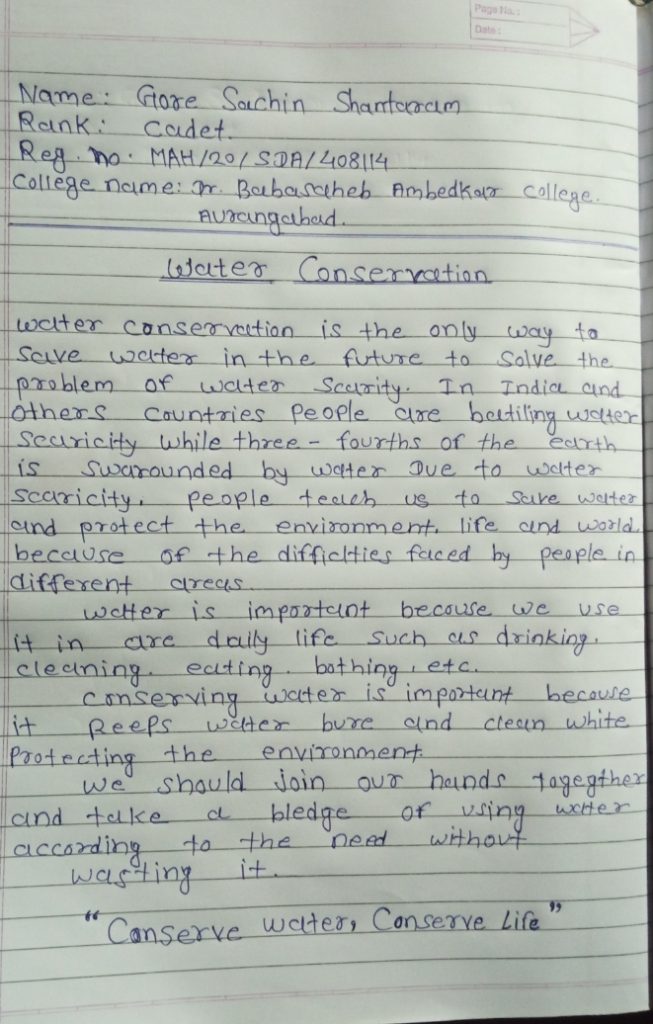 Page No.:
Date:
Name: Gore Sachin Shantaram
Rank: Cadet.
Reg. no. MAH/20/SDA/408114
College name: Dr. Babasaheb Ambedkar College.
Aurangabad.
Water Conservation
water conservation is the only way to
save water in the future to solve the
problem of water Scarity. In India and
others countries people are batiling water
scaricity while three-fourths of the earth
is swarounded by water Due to water
scaricity. people teach us to save water
and protect the environment, life and world,
because of the difficlties faced by people in
different areas.
water is important becouse we use
it in are daily life such as drinking.
cleaning. eating. bathing, etc.
conserving water is important becouse
it Peeps water bure and clean white
Protecting the environment.
we should join our hands togegther
and take a bledge of using water
according to the need without
wasting it.
"Conserve water, Conserve Life"